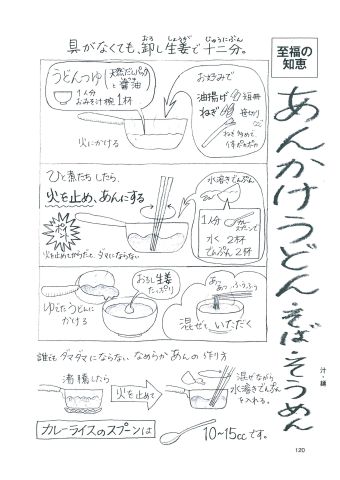 具がなくても、卸し生姜で十二分。
おろ しょうが じゅうにぶん
至福の
知恵
あんかけうどん・そば・そうめん
汁・麺
うどんつゆ
天然だしパック
と醤油
1人分
おみそ汁椀 1杯
火にかける
お好みで
油揚げ 短冊
ねぎ 笹切り
ねぎ多めで、
体ポカポカ
ひと煮たちしたら、
火を止め、あんにする
ポイント
火を止めてからだと、ダマにならない
水溶きでんぷん
1人分
水 2杯
でんぷん 2杯
ゆでたうどんに
かける
おろし生姜
たっぷり
あつあつ ふーふーっ
混ぜて、いただく
誰でもダマダマにならない、なめらかあんの作り方
沸騰したら
火を止めて
混ぜながら
水溶きでんぷん
を入れる。
カレーライスのスプーンは
10~15ccです。
120